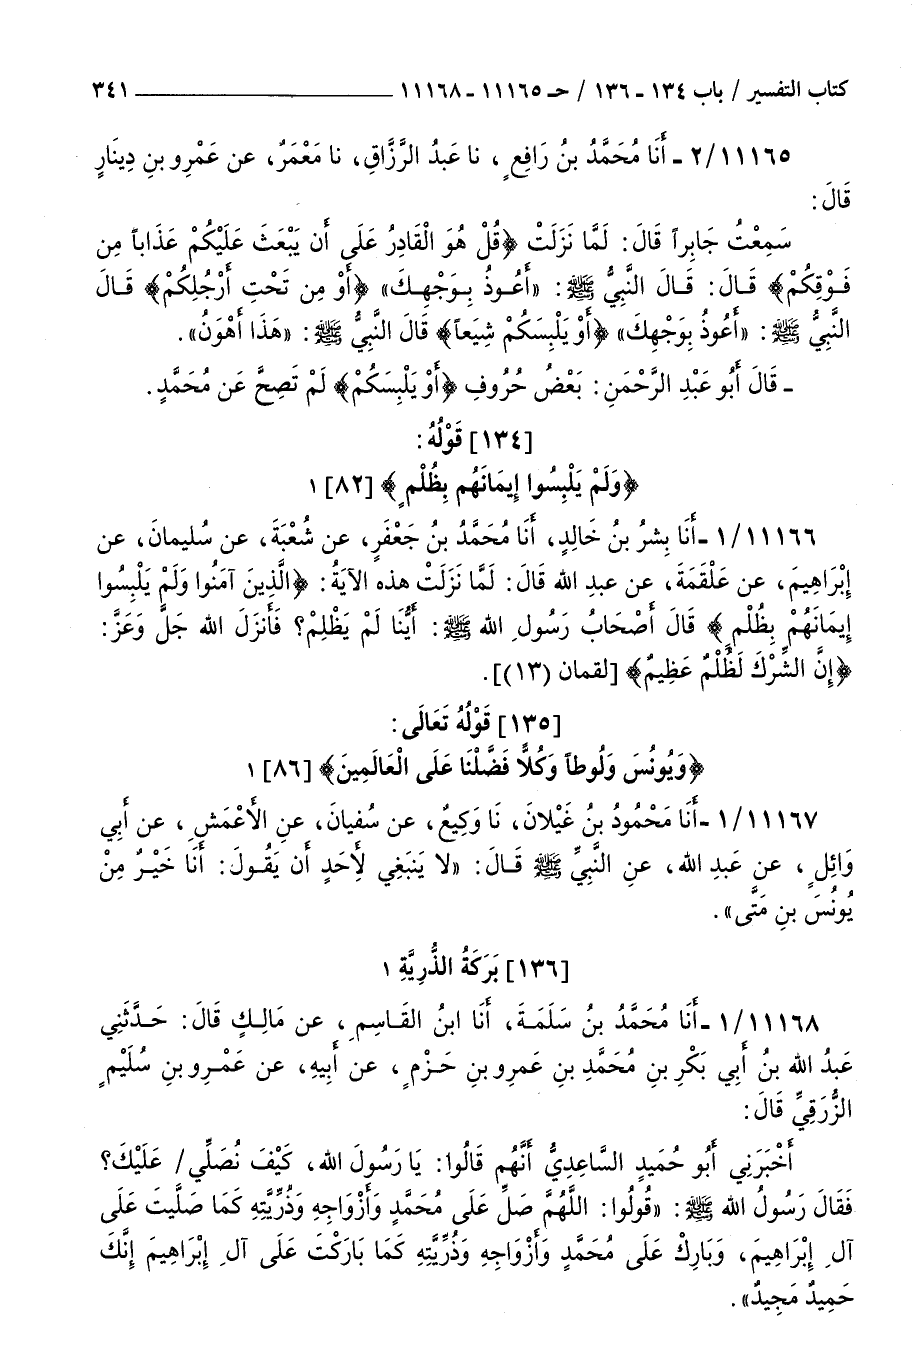 كتاب التفسير / باب ١٣٤ - ١٣٦ / حـ ١١١٦٥ - ١١١٦٨ ٣٤١
٢/١١١٦٥ - أَنَا مُحَمَّدُ بنُ رَافِعٍ، نا عَبدُ الرَّزَّاقِ، نا مَعْمَرُ، عن عَمْرِو بنِ دِينَارٍ
قَالَ:
سَمِعْتُ جَابِراً قَالَ: لَمَّا نَزَلَتْ ﴿قُلْ هُوَ الْقَادِرُ عَلَى أَن يَبْعَثَ عَلَيْكُمْ عَذَاباً مِن
فَوْقِكُمْ﴾ قَالَ: قَالَ النَّبِيُّ ﷺ: «أَعُوذُ بِوَجْهِكَ» ﴿أَوْ مِن تَحْتِ أَرْجُلِكُم﴾ قَالَ
النَّبِيُّ ﷺ: «أَعُوذُ بِوَجْهِكَ» ﴿أَوْ يَلْبِسَكُمْ شِيَعاً﴾ قَالَ النَّبِيُّ ﷺ: «هَذَا أَهْوَنُ».
ـ قَالَ أَبُو عَبْدِ الرَّحْمَنِ: بَعْضُ حُرُوفِ ﴿أَوْ يَلْبِسَكُمْ﴾ لَمْ تَصِحَّ عَن مُحَمَّدٍ.
[١٣٤] قَوْلُهُ:
﴿وَلَمْ يَلْبِسُوا إِيمَانَهُم بِظُلْمٍ﴾ [٨٢] ١
١/١١١٦٦ - أَنَا بِشرُ بنُ خَالِدٍ، أَنَا مُحَمَّدُ بنُ جَعْفَرٍ، عن شُعْبَةَ، عن سُليمانَ، عن
إِبْرَاهِيمَ، عن عَلْقَمَةَ، عن عبدِ الله قَالَ: لَمَّا نَزَلَتْ هذه الآيَةُ: ﴿الَّذِينَ آمَنُوا وَلَمْ يَلْبِسُوا
إِيمَانَهُمْ بِظُلْمٍ﴾ قَالَ أَصْحَابُ رَسُولِ الله ﷺ: أَيُّنَا لَمْ يَظْلِمْ؟ فَأَنزَلَ الله جَلَّ وَعَزَّ:
﴿إِنَّ الشِّرْكَ لَظُلْمٌ عَظِيمٌ﴾ [لقمان (١٣)].
[١٣٥] قَوْلُهُ تَعَالَى:
﴿وَيُونُسَ وَلُوطاً وَكُلًّا فَضَّلْنَا عَلَى الْعَالَمِينَ﴾ [٨٦] ١
١/١١١٦٧ - أَنَا مَحْمُودُ بنُ غَيْلانَ، نَا وَكِيعٌ، عن سُفيانَ، عنِ الأَعْمَشِ، عن أَبِي
وَائِلٍ، عن عَبدِ الله، عنِ النَّبِيِّ ﷺ قَالَ: «لا يَنبَغِي لأَحَدٍ أَن يَقُولَ: أَنَا خَيْرٌ مِنْ
يُونُسَ بنِ مَتَّى».
[١٣٦] بَرَكَةُ الذُّرِيَّةِ ١
١/١١١٦٨ - أَنَا مُحَمَّدُ بنُ سَلَمَةَ، أَنَا ابنُ القَاسِمِ، عن مَالِكٍ قَالَ: حَدَّثَنِي
عَبدُ الله بنُ أَبِي بَكْرِ بنِ مُحَمَّدِ بنِ عَمرِو بنِ حَزْمٍ، عن أَبِيهِ، عن عَمْرِو بنِ سُلَيْمٍ
الزُّرَقِيِّ قَالَ:
أَخْبَرَنِي أَبُو حُمَيدٍ السَّاعِدِيُّ أَنَّهُم قَالُوا: يَا رَسُولَ الله، كَيْفَ نُصَلِّي/ عَلَيْكَ؟
فَقَالَ رَسُولُ الله ﷺ: «قُولُوا: اللَّهُمَّ صَلِّ عَلَى مُحَمَّدٍ وَأَزْوَاجِهِ وَذُرِّيَّتِهِ كَمَا صَلَّيتَ عَلَى
آلِ إِبْرَاهِيمَ، وَبَارِكْ عَلَى مُحَمَّدٍ وَأَزْوَاجِهِ وَذُرِّيَّتِهِ كَمَا بَارَكْتَ عَلَى آلِ إِبْرَاهِيمَ إِنَّكَ
حَمِيدٌ مَجِيدٌ».